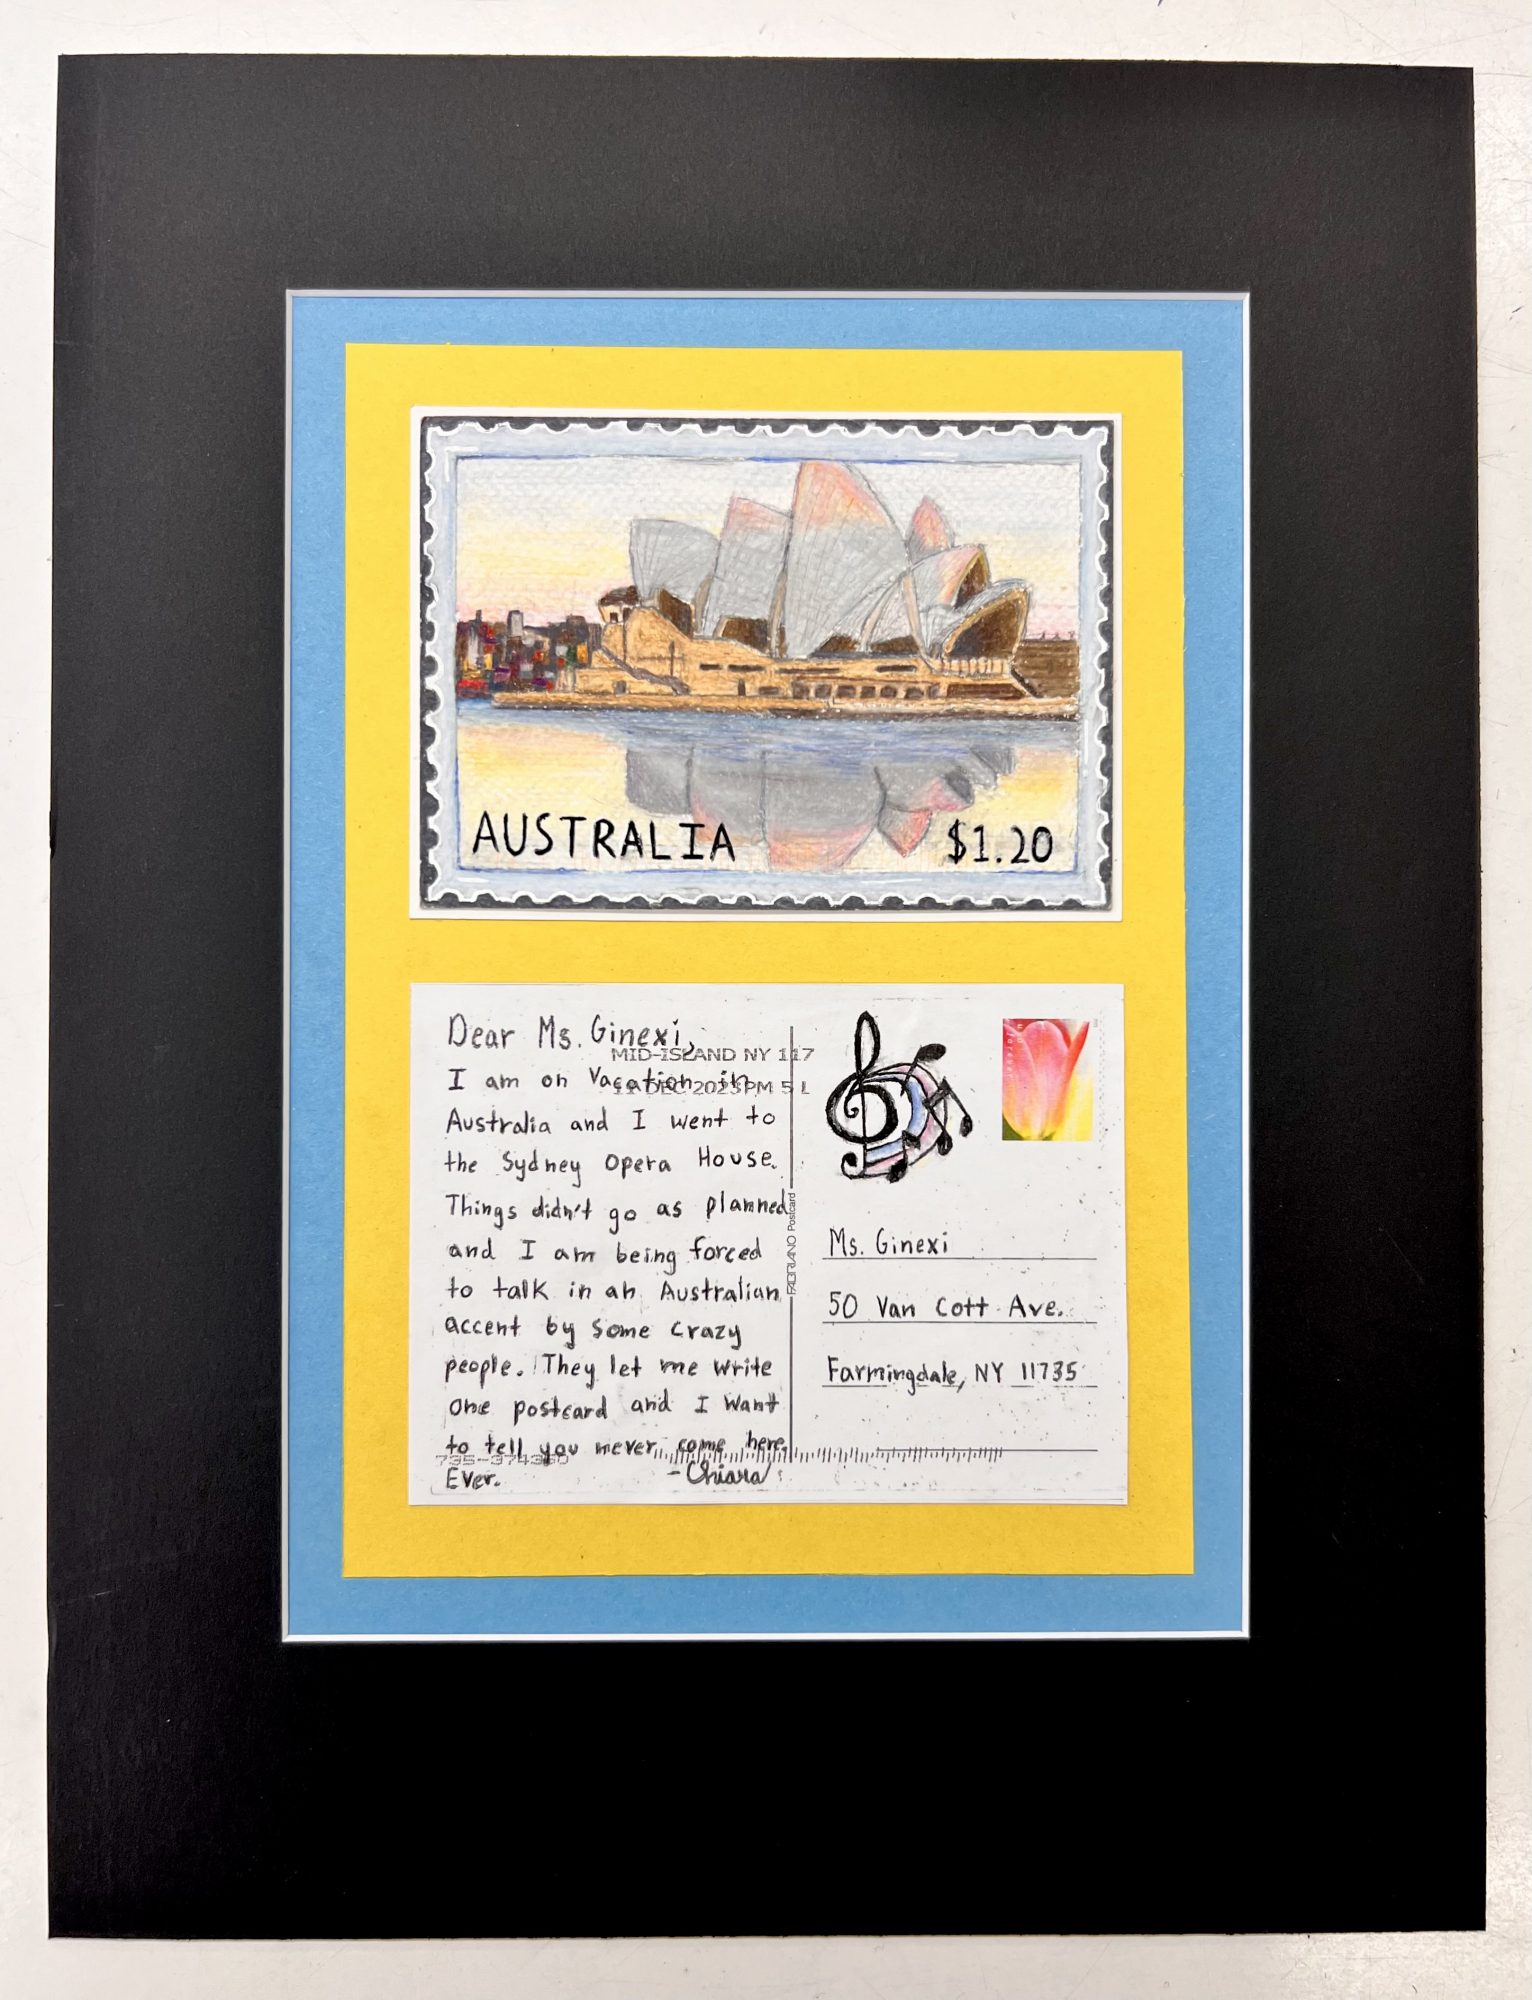 AUSTRALIA $1.20
Dear Ms. Ginexi,
MID-ISLAND NY 117
I am on Vacation in
11 DEC 2023 PM 5 L
Australia and I went to
the Sydney Opera House.
Things didn't go as planned
and I am being forced
to talk in an Australian
accent by some crazy
people. They let me write
one postcard and I want
to tell you never come here.
Ever.
-Chiara
735-374360
FABRIANO Postcard
usa forever
Ms. Ginexi
50 Van Cott Ave.
Farmingdale, NY 11735